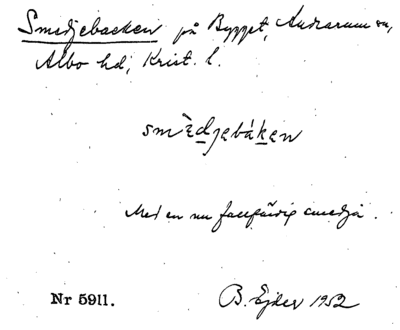 Smedjebacken på Bygget, Andrarum sn,
Albo hd, Krist. l.
smèdjebáken
Med en nu fallfärdig smedja.
Nr 5911.
B. Ejder 1952